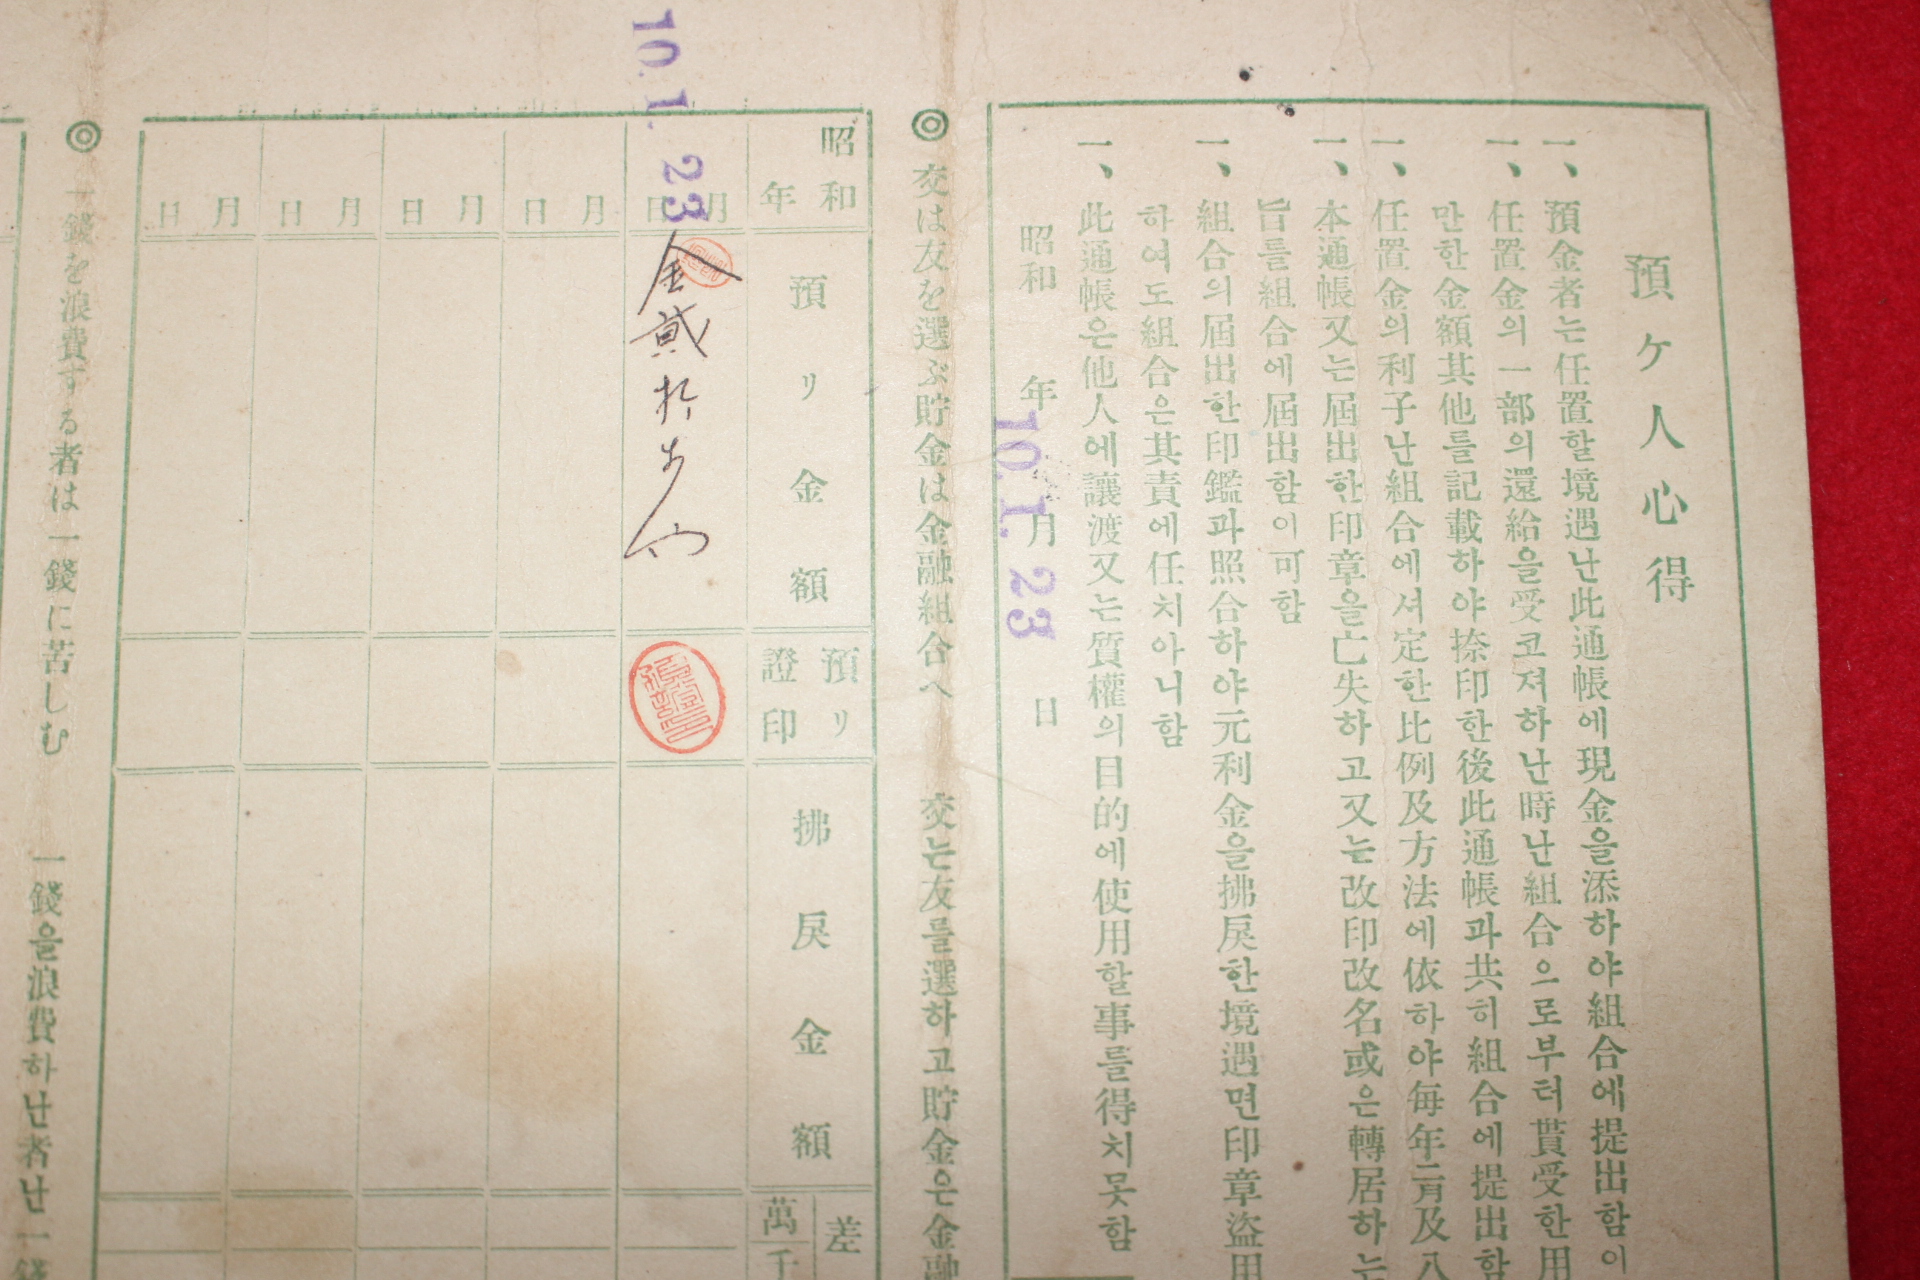 預ケ人心得
一、預金者는任置할境遇난此通帳에現金을添하야組合에提出함이
一、任置金의一部의還給을受코져하난時난組合으로부터貰受한用
만한金額其他를記載하야捺印한後此通帳과共히組合에提出함
一、任置金의利子난組合에셔定한比例及方法에依하야每年二月及八
一、本通帳又는屆出한印章을亡失하고又는改印改名或은轉居하는
旨를組合에屆出함이可함
一、組合의屆出한印鑑과照合하야元利金을拂戾한境遇면印章盜用
하여도組合은其責에任치아니함
一、此通帳은他人에讓渡又는質權의目的에使用할事를得치못함
昭和 年 月 日
10. 1. 23
◎ 交は友を選ぶ貯金は金融組合へ 交는友를選하고貯金은金融
昭和 年
月 日 月 日 月 日 月 日 月 日
10. 1. 23
預リ金額
預リ證印
拂戾金額
差
萬 千
金貳拾
◎ 一錢を浪費する者は一錢に苦しむ 一錢을浪費하난者난一錢